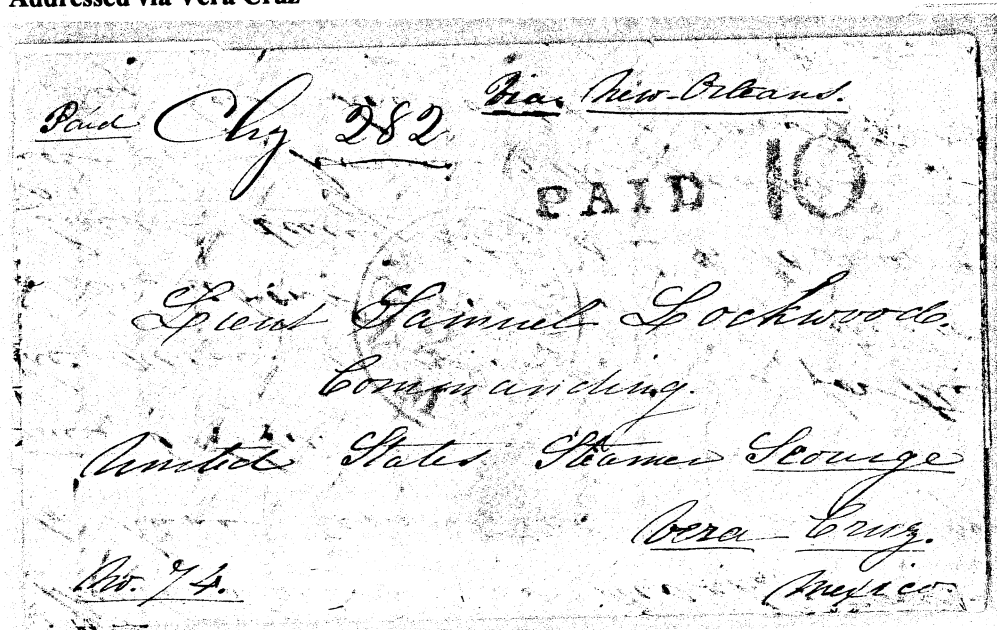 Addressed via Vera Cruz
Paid Chg 282 Via New-Orleans.
PAID 10
Lieut Samuel Lockwood.
Commanding.
United States Steamer Scourge
Vera Cruz.
Mexico.
No. 74.